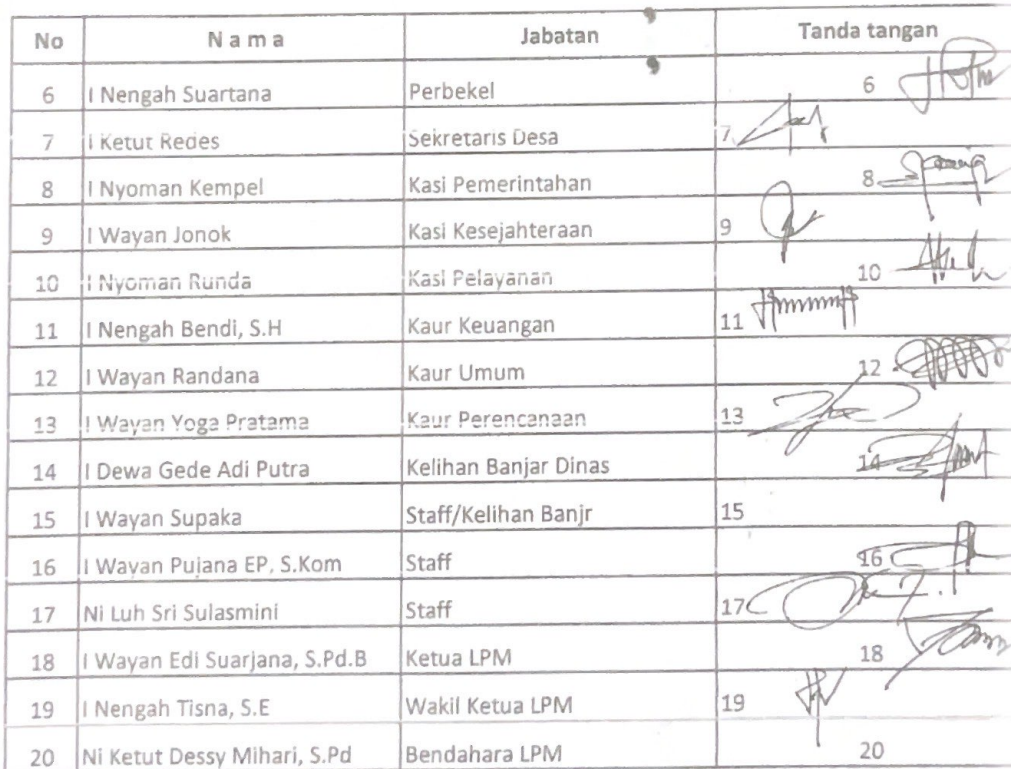 No Nama Jabatan Tanda tangan
6 I Nengah Suartana Perbekel 6
7 I Ketut Redes Sekretaris Desa 7
8 I Nyoman Kempel Kasi Pemerintahan 8
9 I Wayan Jonok Kasi Kesejahteraan 9
10 I Nyoman Runda Kasi Pelayanan 10
11 I Nengah Bendi, S.H Kaur Keuangan 11
12 I Wayan Randana Kaur Umum 12
13 I Wayan Yoga Pratama Kaur Perencanaan 13
14 I Dewa Gede Adi Putra Kelihan Banjar Dinas 14
15 I Wayan Supaka Staff/Kelihan Banjr 15
16 I Wayan Pujana EP, S.Kom Staff 16
17 Ni Luh Sri Sulasmini Staff 17
18 I Wayan Edi Suarjana, S.Pd.B Ketua LPM 18
19 I Nengah Tisna, S.E Wakil Ketua LPM 19
20 Ni Ketut Dessy Mihari, S.Pd Bendahara LPM 20